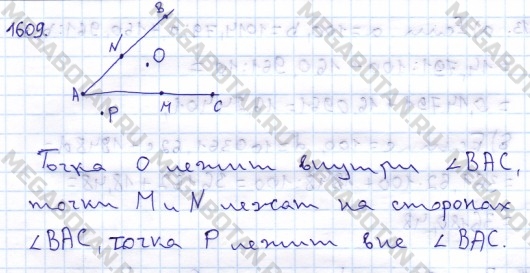 1609.
B
N
O
A
P
M
C
Точка O лежит внутри ∠BAC,
точки M и N лежат на сторонах
∠BAC, точка P лежит вне ∠BAC.
MEGABOTAN.RU